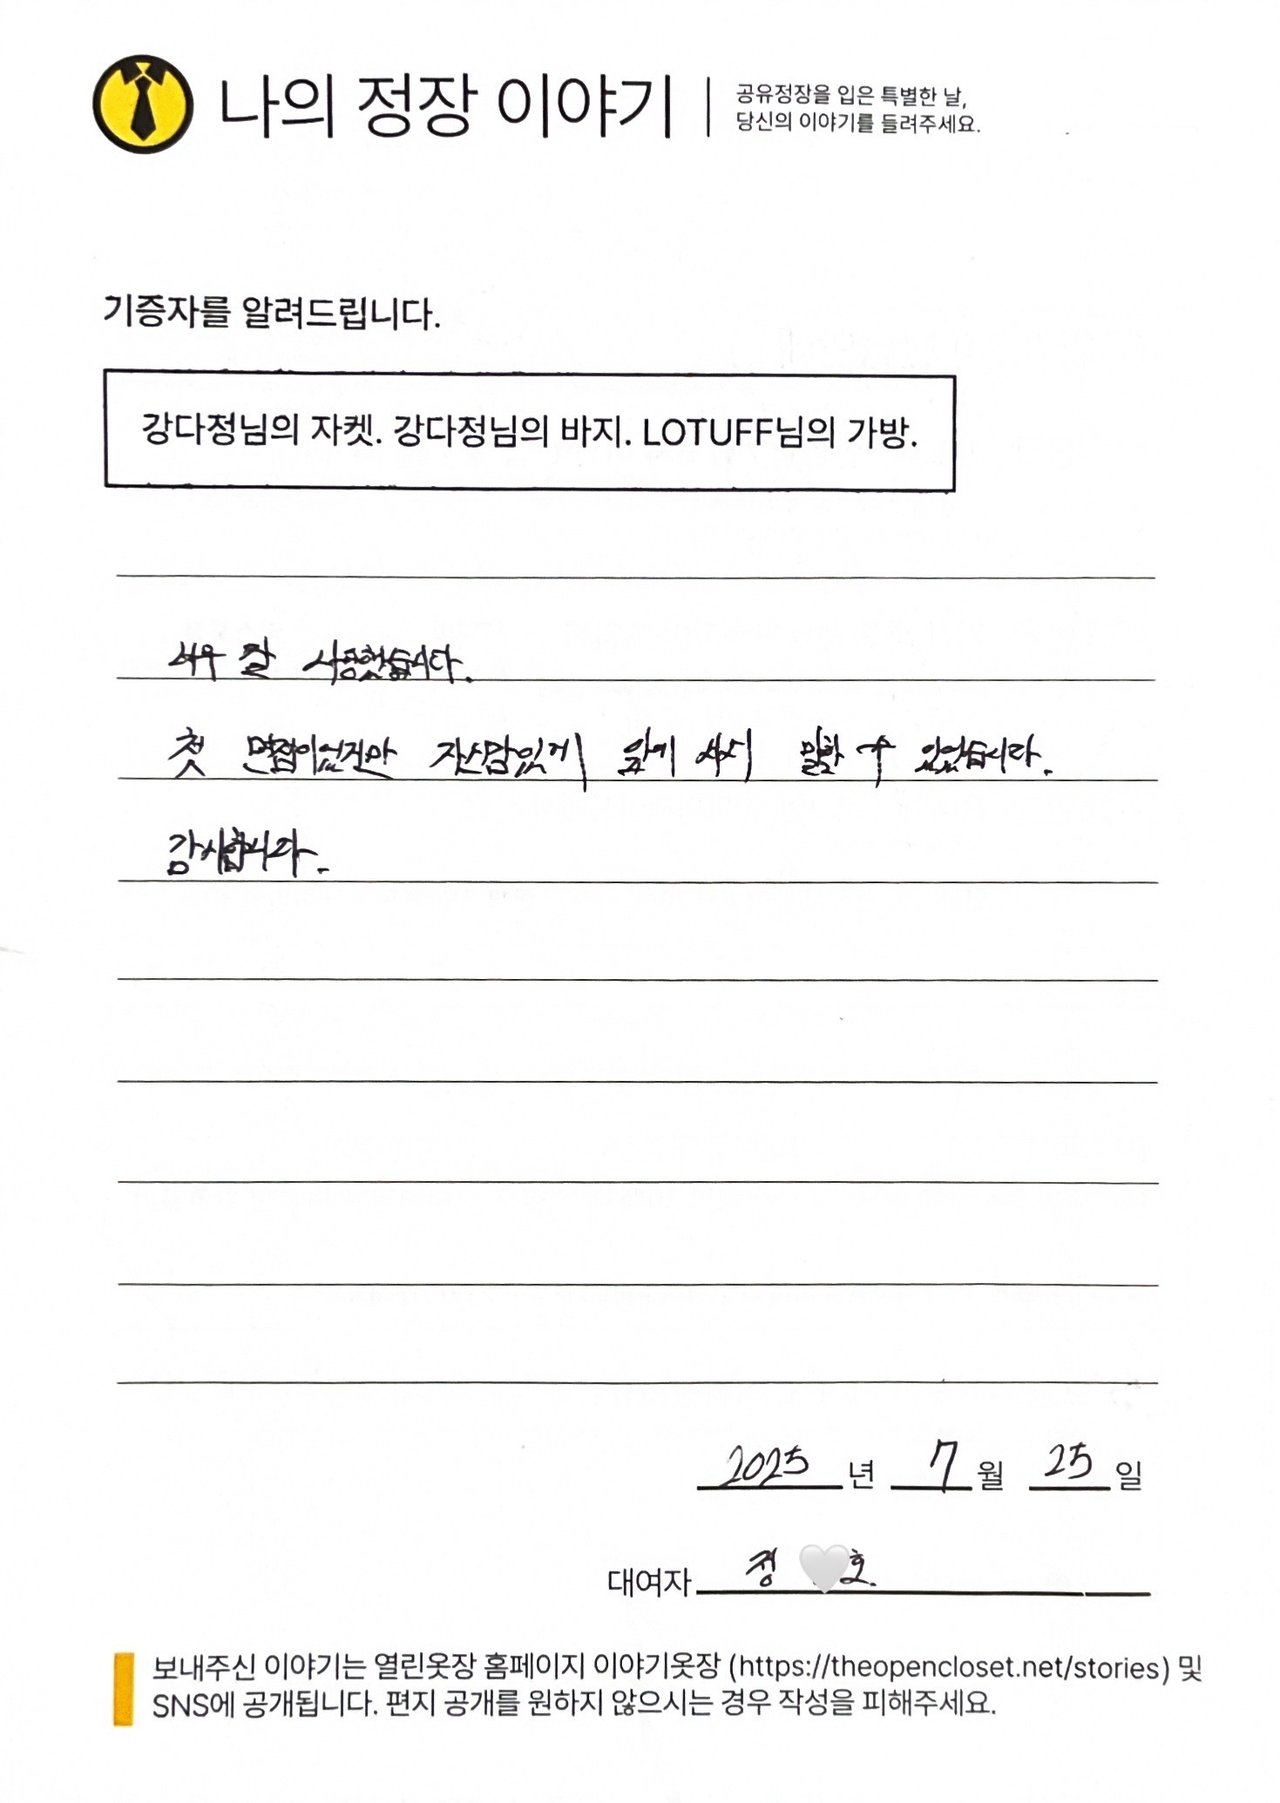 나의 정장 이야기
공유정장을 입은 특별한 날,
당신의 이야기를 들려주세요.
기증자를 알려드립니다.
강다정님의 자켓. 강다정님의 바지. LOTUFF님의 가방.
잘 사용했습니다.
첫 면접이었지만 자신감있게 말할 수 있었습니다.
감사합니다.
2025 년 7 월 25 일
대여자 정 호
보내주신 이야기는 열린옷장 홈페이지 이야기옷장 (https://theopencloset.net/stories) 및
SNS에 공개됩니다. 편지 공개를 원하지 않으시는 경우 작성을 피해주세요.